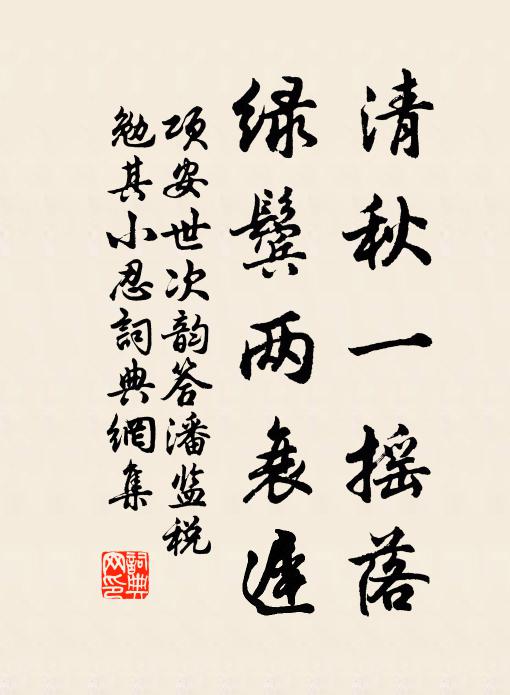 清秋一摇落
绿鬓两衰迟
项安世次韵答潘监税
勉其小忍詞典網集
詞典网印